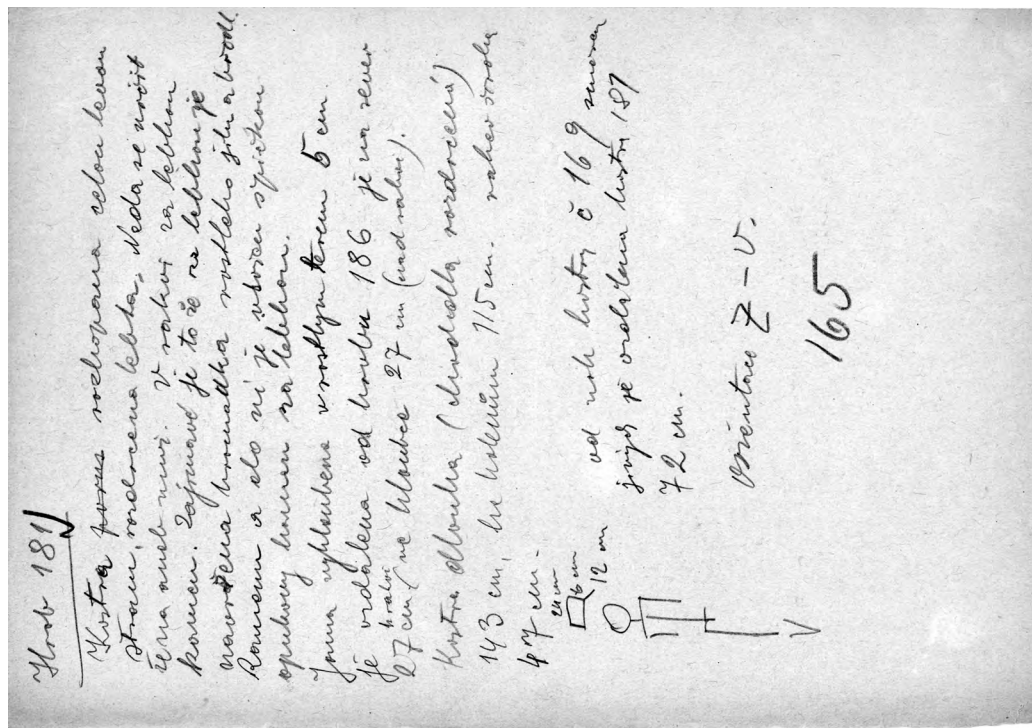 Hrob 181
Kostra rozkopana celou levou
stranu, rozdrcena lebka, Neda se určit
žena aneb muž. V rakvi za lebkou
kamen. Zajmavé je to že za lebkou je
navršena hromadka rostlého jílu a hrodl.
kamenu a do ní je vbočen spičkou
opukovy kamen za lebkou.
Jama vyhloubena v rostlym terenu 5 cm.
je vzdalena od hrobu 186 je na sever
27 cm (ve hloubce 27 cm (nad rakví).
Kostra dlouha (chodidla rozdrcená)
143 cm, ku kolenům 115 cm. rakev široka
47 cm.
24 cm
6 cm
12 cm
od noh kostry č 169 smerem
jižnym je vzdalena kostry 187
72 cm.
Orientace Z – V.
V
165